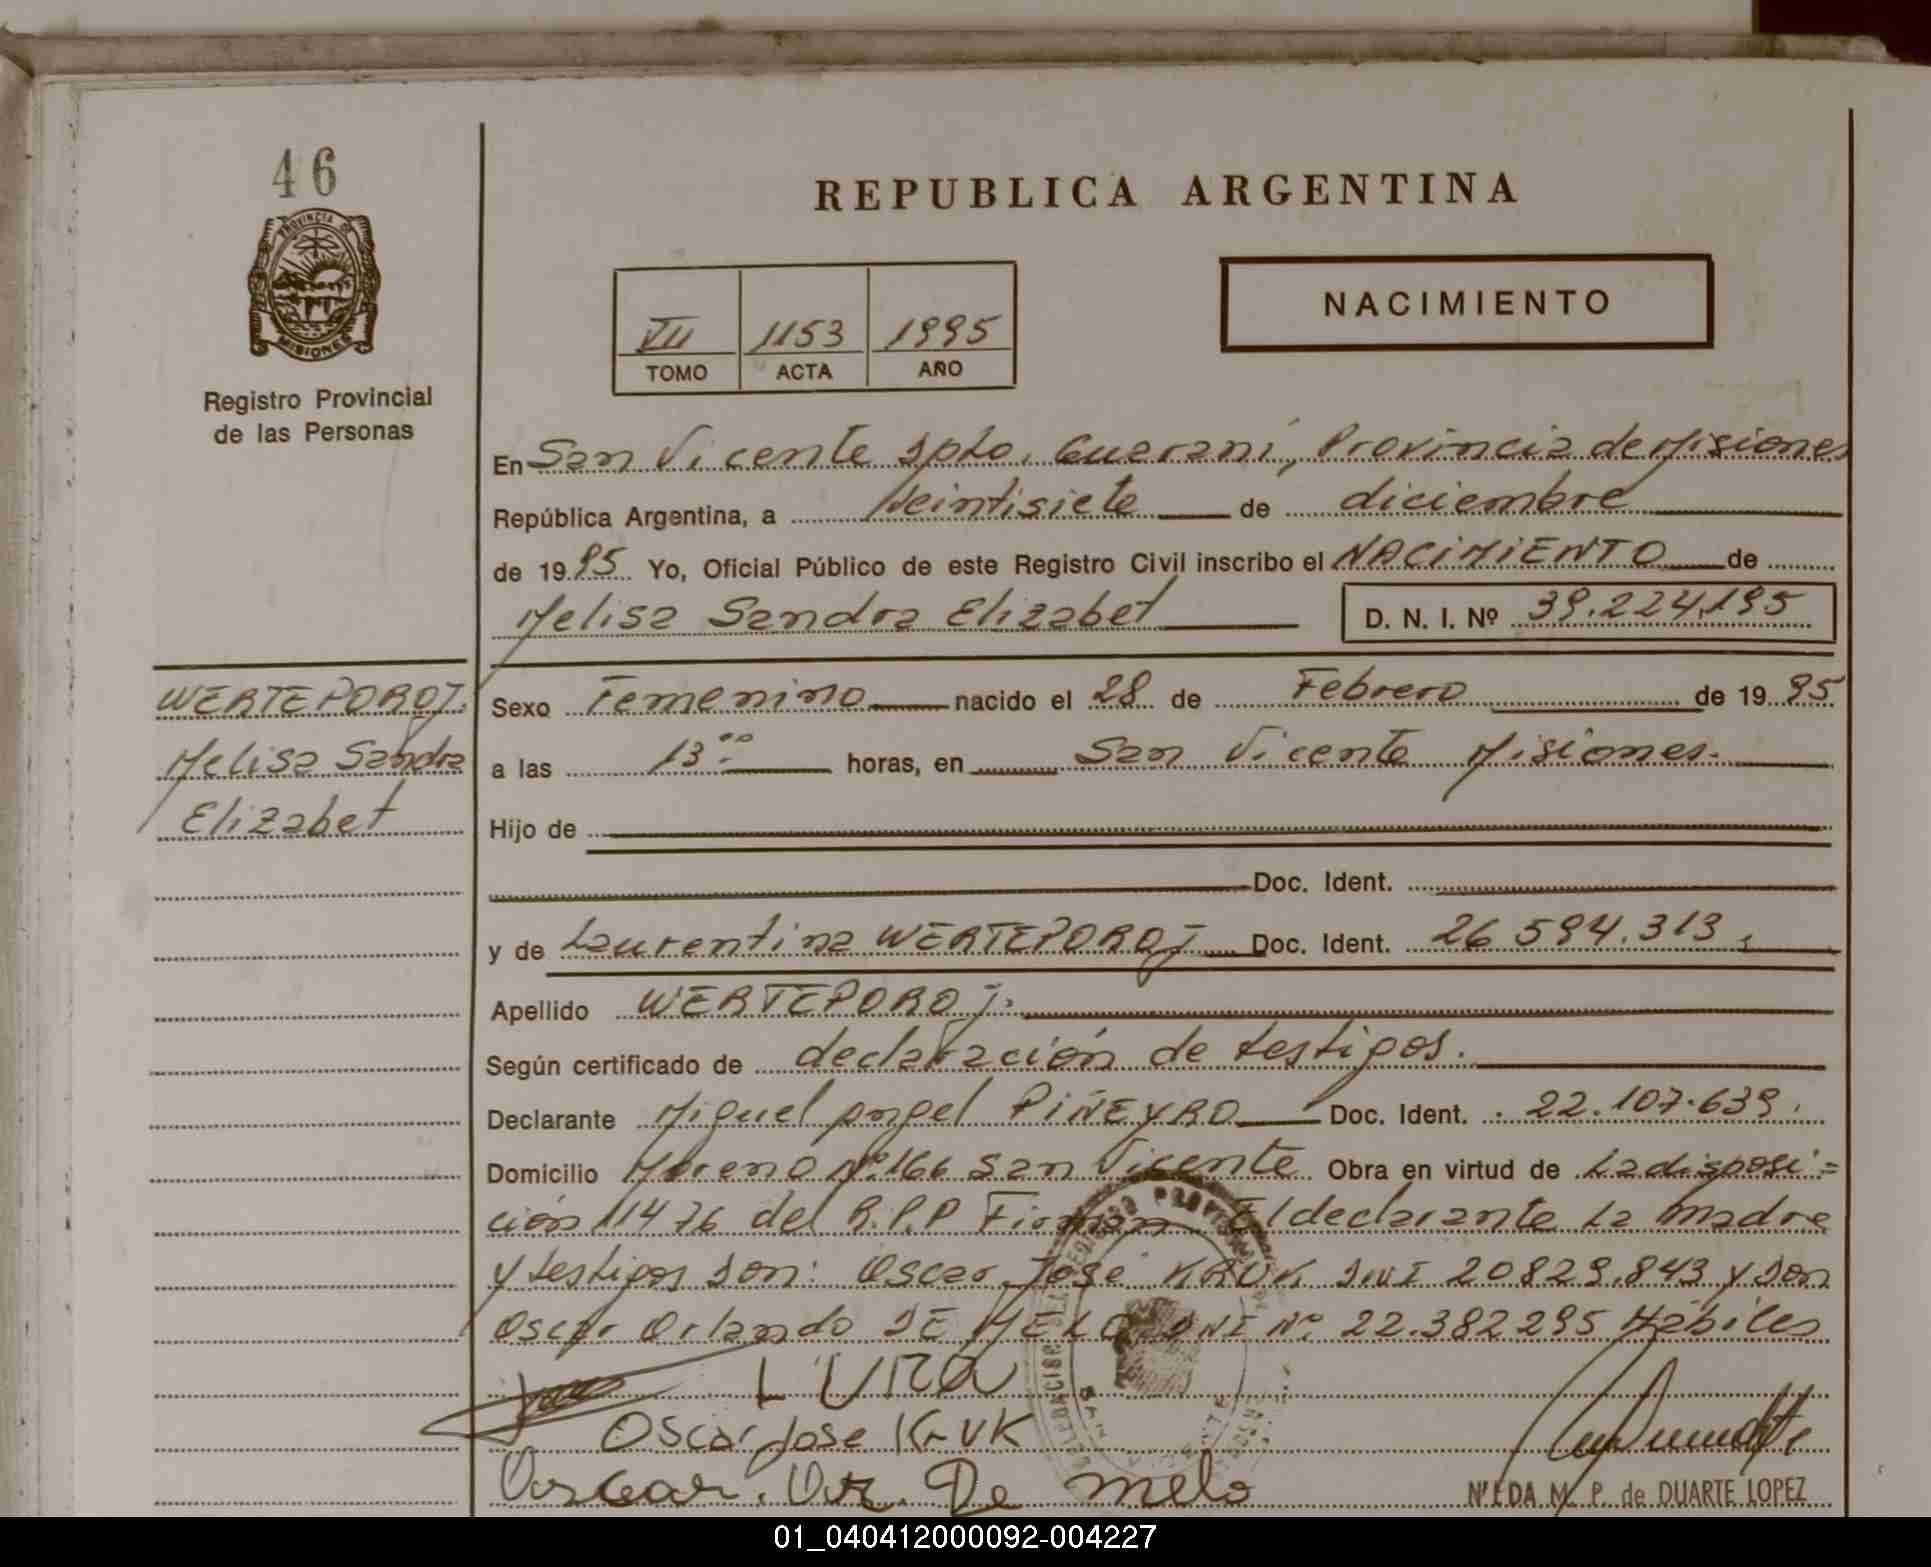 46
PROVINCIA DE
MISIONES
Registro Provincial
de las Personas
REPUBLICA ARGENTINA
NACIMIENTO
VII 1153 1995
TOMO ACTA AÑO
En San Vicente Dpto. Guaraní, Provincia de Misiones
República Argentina, a Veintisiete de diciembre
de 1995 Yo, Oficial Público de este Registro Civil inscribo el NACIMIENTO de
Melisa Sandra Elizabet D. N. I. Nº 39.224.195
WERTEPOROJ.
Melisa Sandra
Elizabet
Sexo Femenino nacido el 28 de Febrero de 1995
a las 13:00 horas, en San Vicente Misiones.
Hijo de
Doc. Ident.
y de Laurentina WERTEPOROJ Doc. Ident. 26 594.313.
Apellido WERTEPOROJ.
Según certificado de declaración de testigos.
Declarante Miguel Angel PIÑEYRO Doc. Ident. 22.107.639.
Domicilio Moreno Nº 166 San Vicente Obra en virtud de La disposi=
ción 11476 del R.P.P Firman El declarante La madre
y testigos Don: Oscar José KRUK D.N.I 20829.843 y Don
Oscar Orlando DE MELO DNI Nº 22.382295 Hábiles
Oscar Jose KRUK
Oscar. Or. De melo
M. P. de DUARTE LOPEZ
01_040412000092-004227